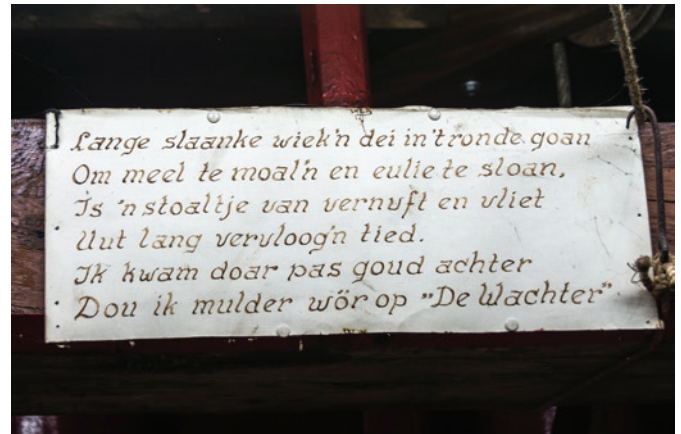 Lange slaanke wiek'n dei in 't ronde goan
Om meel te moal'n en eulie te sloan,
Is 'n stoaltje van vernuft en vliet
Uut lang vervloog'n tied.
Ik kwam doar pas goud achter
Dou ik mulder wör op "De Wachter"